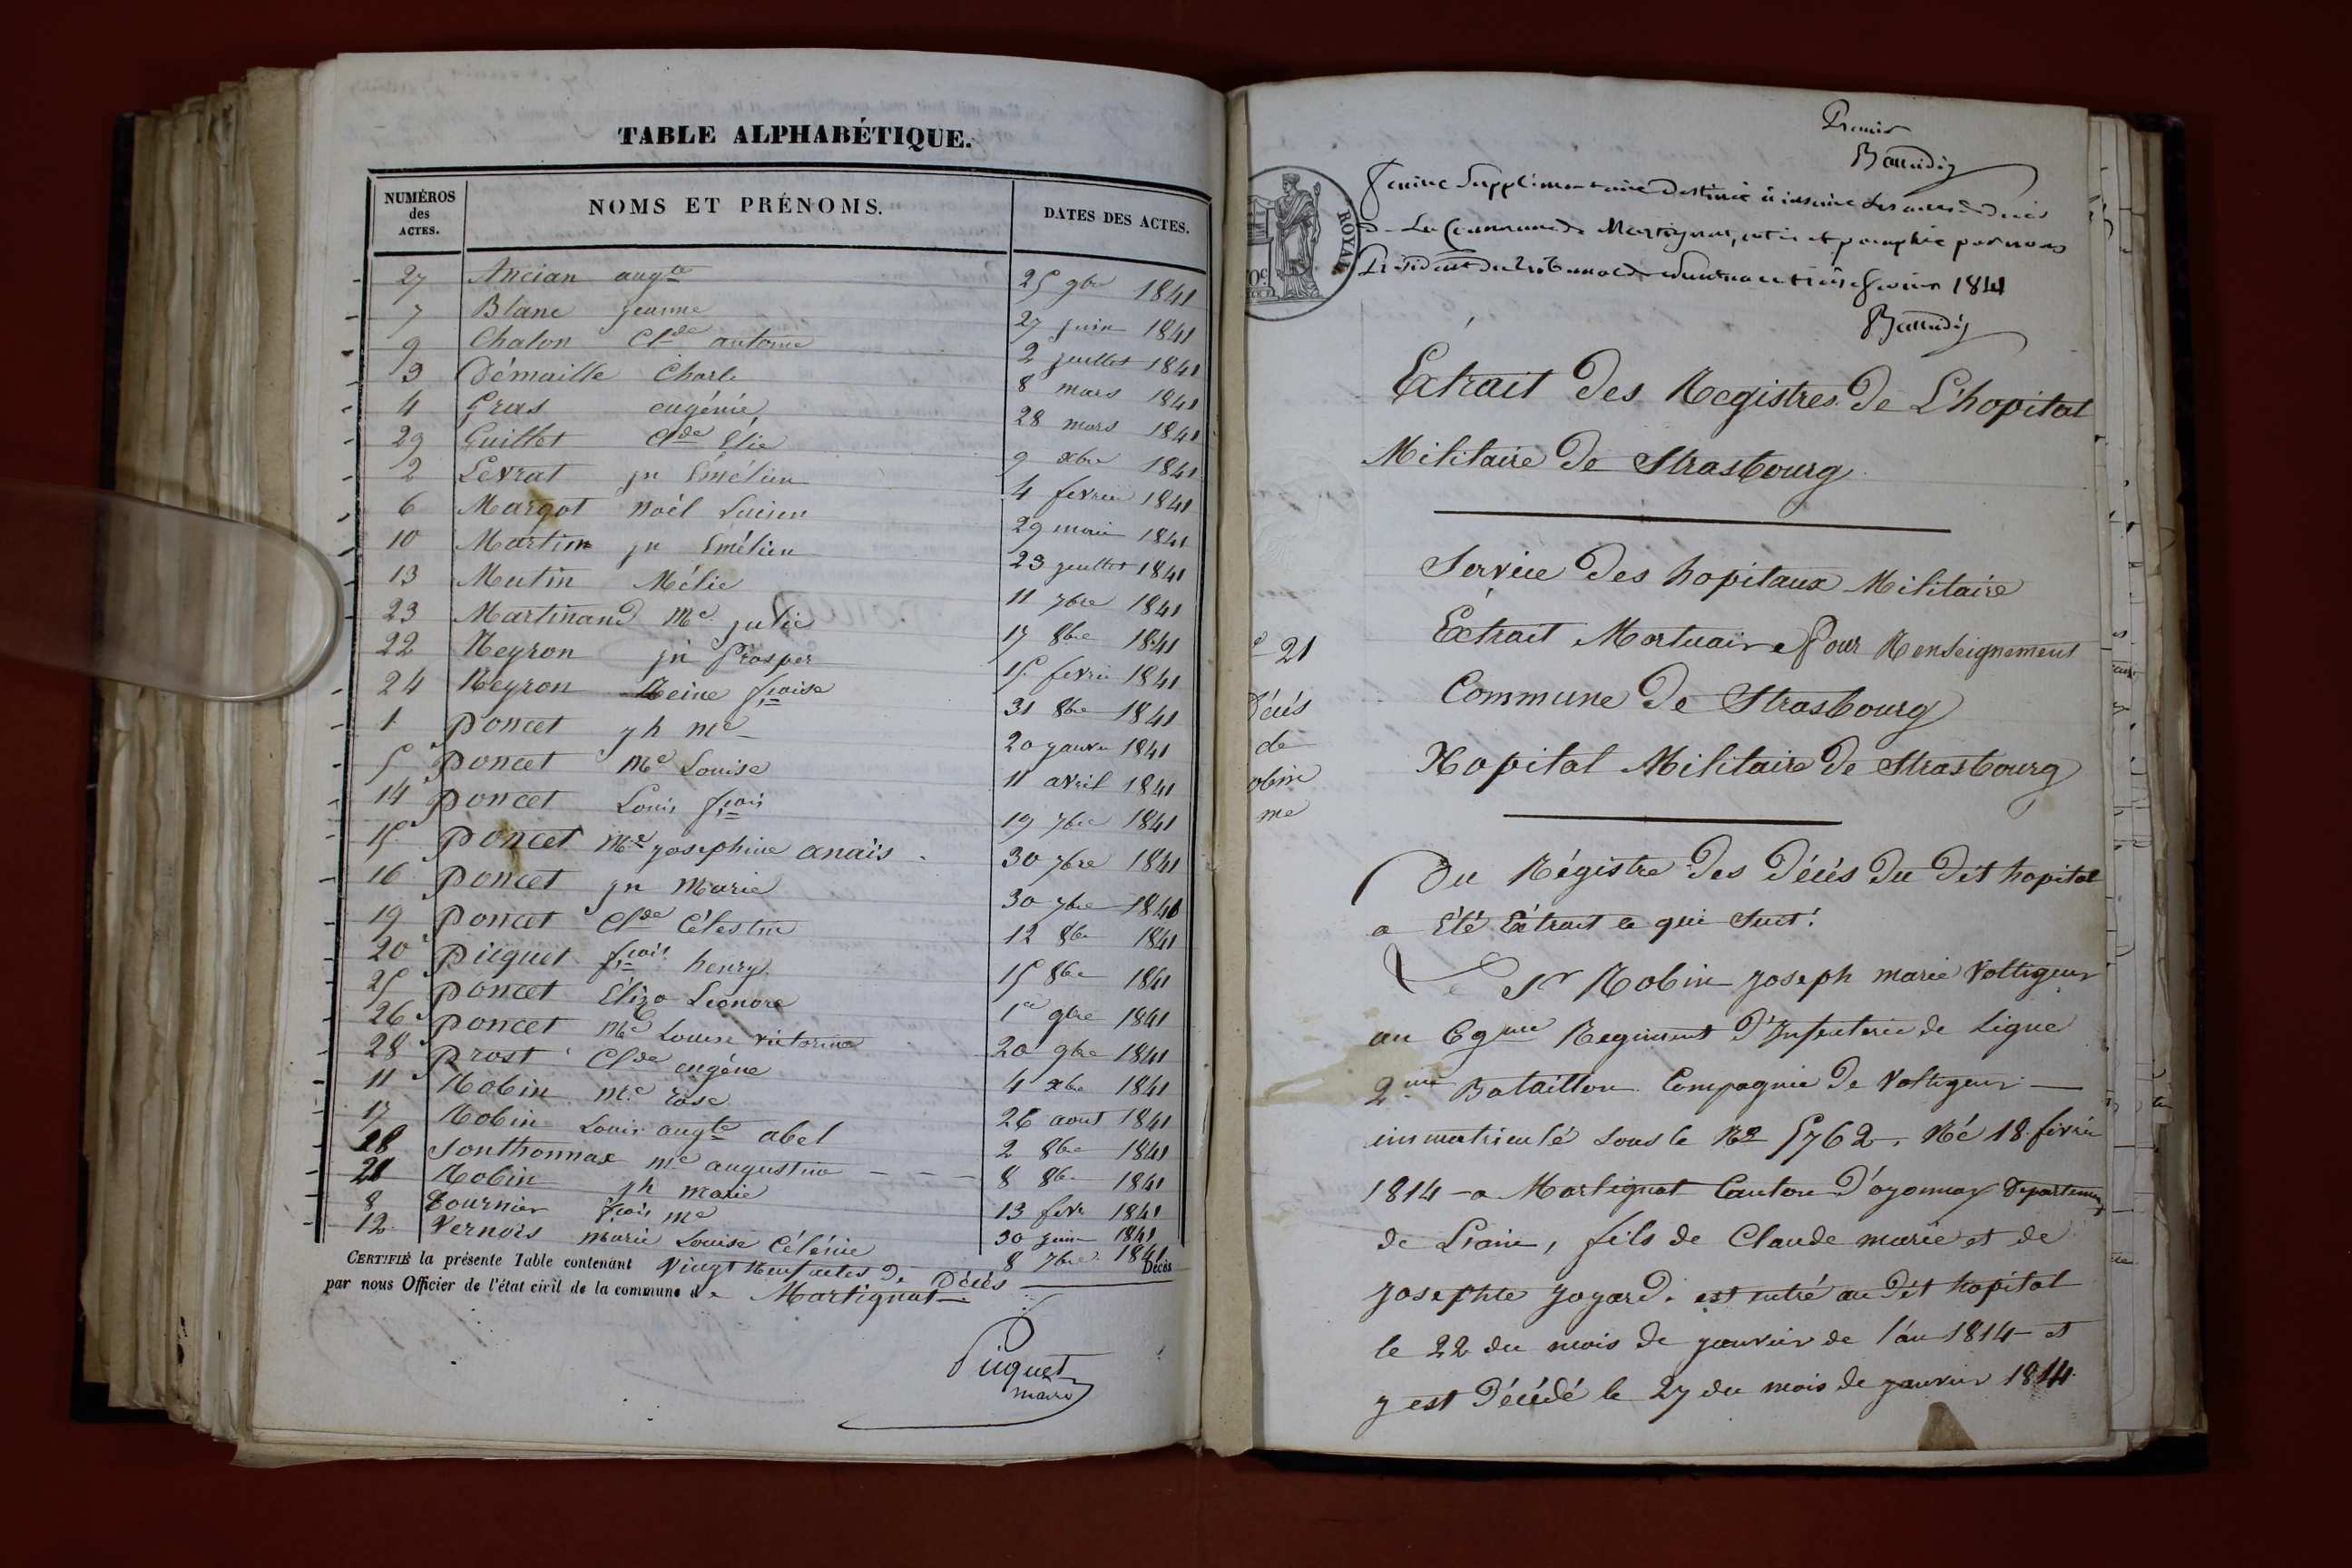 TABLE ALPHABÉTIQUE.
NUMÉROS des ACTES. NOMS ET PRÉNOMS. DATES DES ACTES.
27 Ancian augte 25 9bre 1841
7 Blanc jeanne 27 juin 1841
9 Chalon Clde antoine 2 juillet 1841
3 Démaille Charle 8 mars 1841
4 Gras eugénie 28 mars 1841
29 Guillot Clde Élie 9 xbre 1841
2 Levrat jn Émélien 4 fevrier 1841
6 Margot Noël Lucien 29 mai 1841
10 Martin jn Émélien 23 juillet 1841
13 Mutin Mélie 11 7bre 1841
23 Martinand Me julie 17 8bre 1841
22 Neyron jn Prosper 15 fevrier 1841
24 Neyron Reine fcoise 31 8bre 1841
1 Poncet jh me 20 janvr 1841
5 Poncet Me Louise 11 avril 1841
14 Poncet Louis fcois 19 7bre 1841
15 Poncet Me josephine anaïs 30 7bre 1841
16 Poncet jn Marie 30 7bre 1841
19 Poncet Clde Célestin 12 8bre 1841
20 Picquet fcois henry 15 8bre 1841
25 Poncet Éliza Léonore 1er 9bre 1841
26 Poncet Me Louise victorine 20 9bre 1841
28 Prost Clde eugéne 4 xbre 1841
11 Robin me rose 26 aout 1841
17 Robin Louis augte abel 2 8bre 1841
18 Sonthonnax me augustine 8 8bre 1841
21 Robin jh marie 13 fevr 1841
8 Tournier fcois me 30 juin 1841
12 Vernois marie Louise Célénie 8 7bre 1841
CERTIFIÉ la présente Table contenant Vingt Neuf actes de Décès Décès
par nous Officier de l'état civil de la commune de Martignat
Picquet
maire
Premier
ROYAL
Feuille Supplémentaire destinée à inscrire des actes de décès
de la Commune de Martignat, cotée et paraphée par nous
Président du Tribunal de Nantua ce février 1841
Extrait des Registres de L'hopital
Militaire de Strasbourg
Service des hopitaux Militaire
Extrait Mortuaire Pour Renseignement
Commune de Strasbourg
Hopital Militaire de Strasbourg
21
Décés
de
obin
me
Du Régistre des Décés du dit hopital
a Été Extrait ce qui Suit:
Sr Robin joseph marie Voltigeur
au 69me Regiment d'Infanterie de Ligne
2me Bataillon Compagnie de Voltigeur
immatriculé sous le No 5762. Né 18 février
1814 a Martignat Canton d'oyonnax Departement
de Liain, fils de Claude marie et de
josephte joyard. est entré au dit hopital
le 22 du mois de janvier de l'an 1814 et
y est Décédé le 27 du mois de janvier 1814